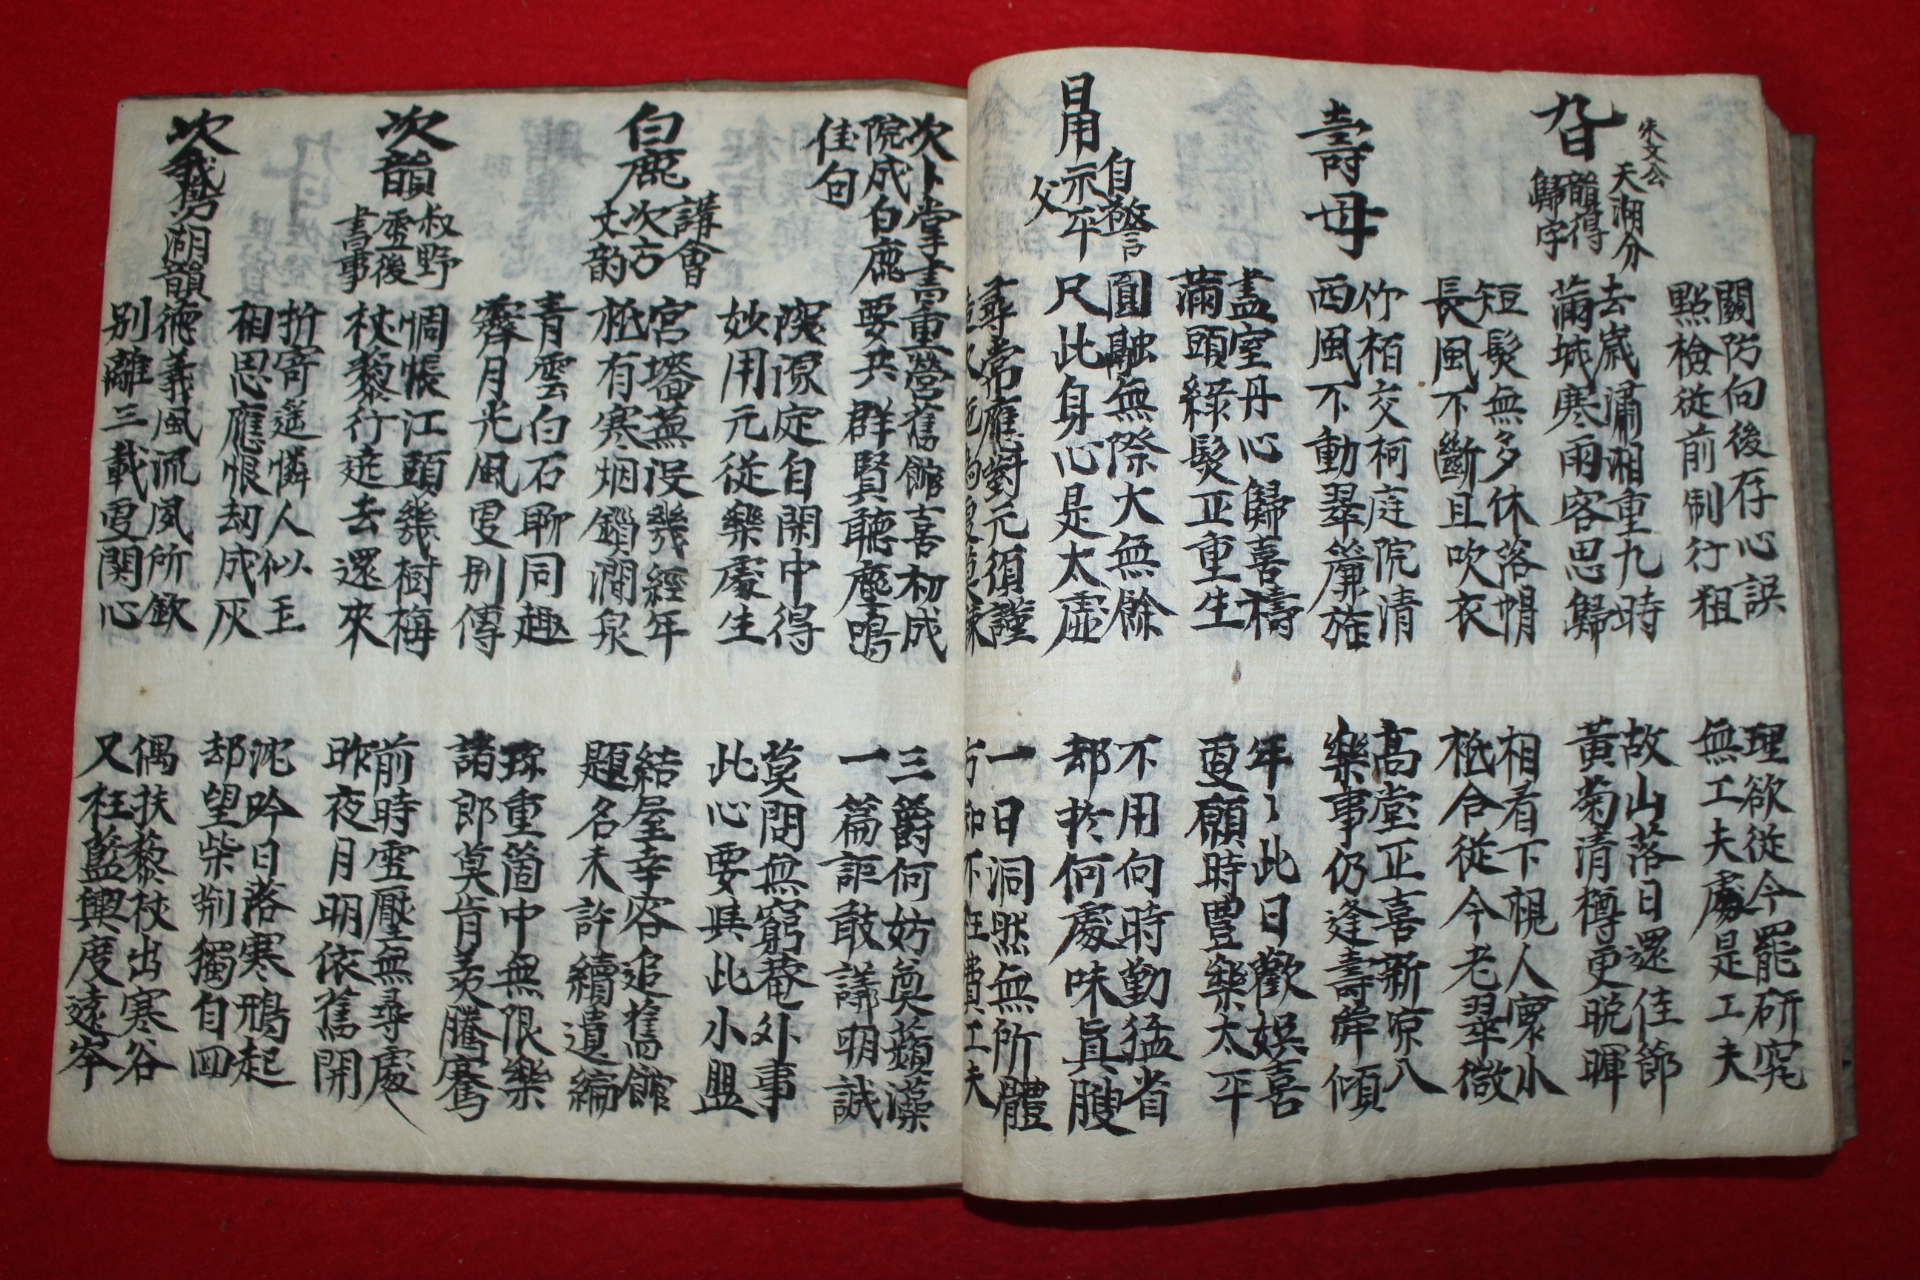 關防向後存心誤
點檢從前制行粗
理欲從今罷研究
無工夫處是工夫
九日
朱文公
天湖分
韻得
歸字
去歲瀟湘重九時
滿城寒雨客思歸
故山落日還佳節
黃菊清樽更晩暉
短髮無多休落帽
長風不斷且吹衣
相看下視人寰小
秪合從今老翠微
壽母
竹栢交柯庭院清
西風不動翠簾旌
高堂正喜新凉入
樂事仍逢壽斝傾
盡室丹心歸喜禱
滿頭綠髮正重生
年〻此日歡娛喜
更願時豊樂太平
日用
自警
示平
父
圓融無際大無餘
尺此身心是太虛
不用向時勤猛省
却於何處味眞腴
尋常應對元須謹
一日洞然無所體
方知不枉費工夫
次卜掌書
院成白鹿
佳句
重營舊館喜初成
要共群賢聽鹿鳴
三爵何妨奠蘋藻
一篇詎敢議明誠
深源定自閑中得
妙用元從樂處生
莫問無窮菴外事
此心要與此小盟
白鹿
講會
次方
丈韵
宮墻蕪沒幾經年
秪有寒烟鎖澗泉
結屋幸容追舊館
題名未許續遺編
青雲白石聊同趣
霽月光風更別傳
珎重箇中無限樂
諸郎莫肯羨騰騫
次韻
叔野
雪後
書事
惆悵江頭幾樹梅
杖藜行遶去還來
前時雪壓無尋處
昨夜月明依舊開
折寄遙憐人似玉
相思應恨刼成灰
沈吟日落寒鴉起
却望柴荊獨自回
次鵞湖韻
德義風流夙所欽
別離三載更関心
偶扶藜杖出寒谷
又枉藍輿度遠岑